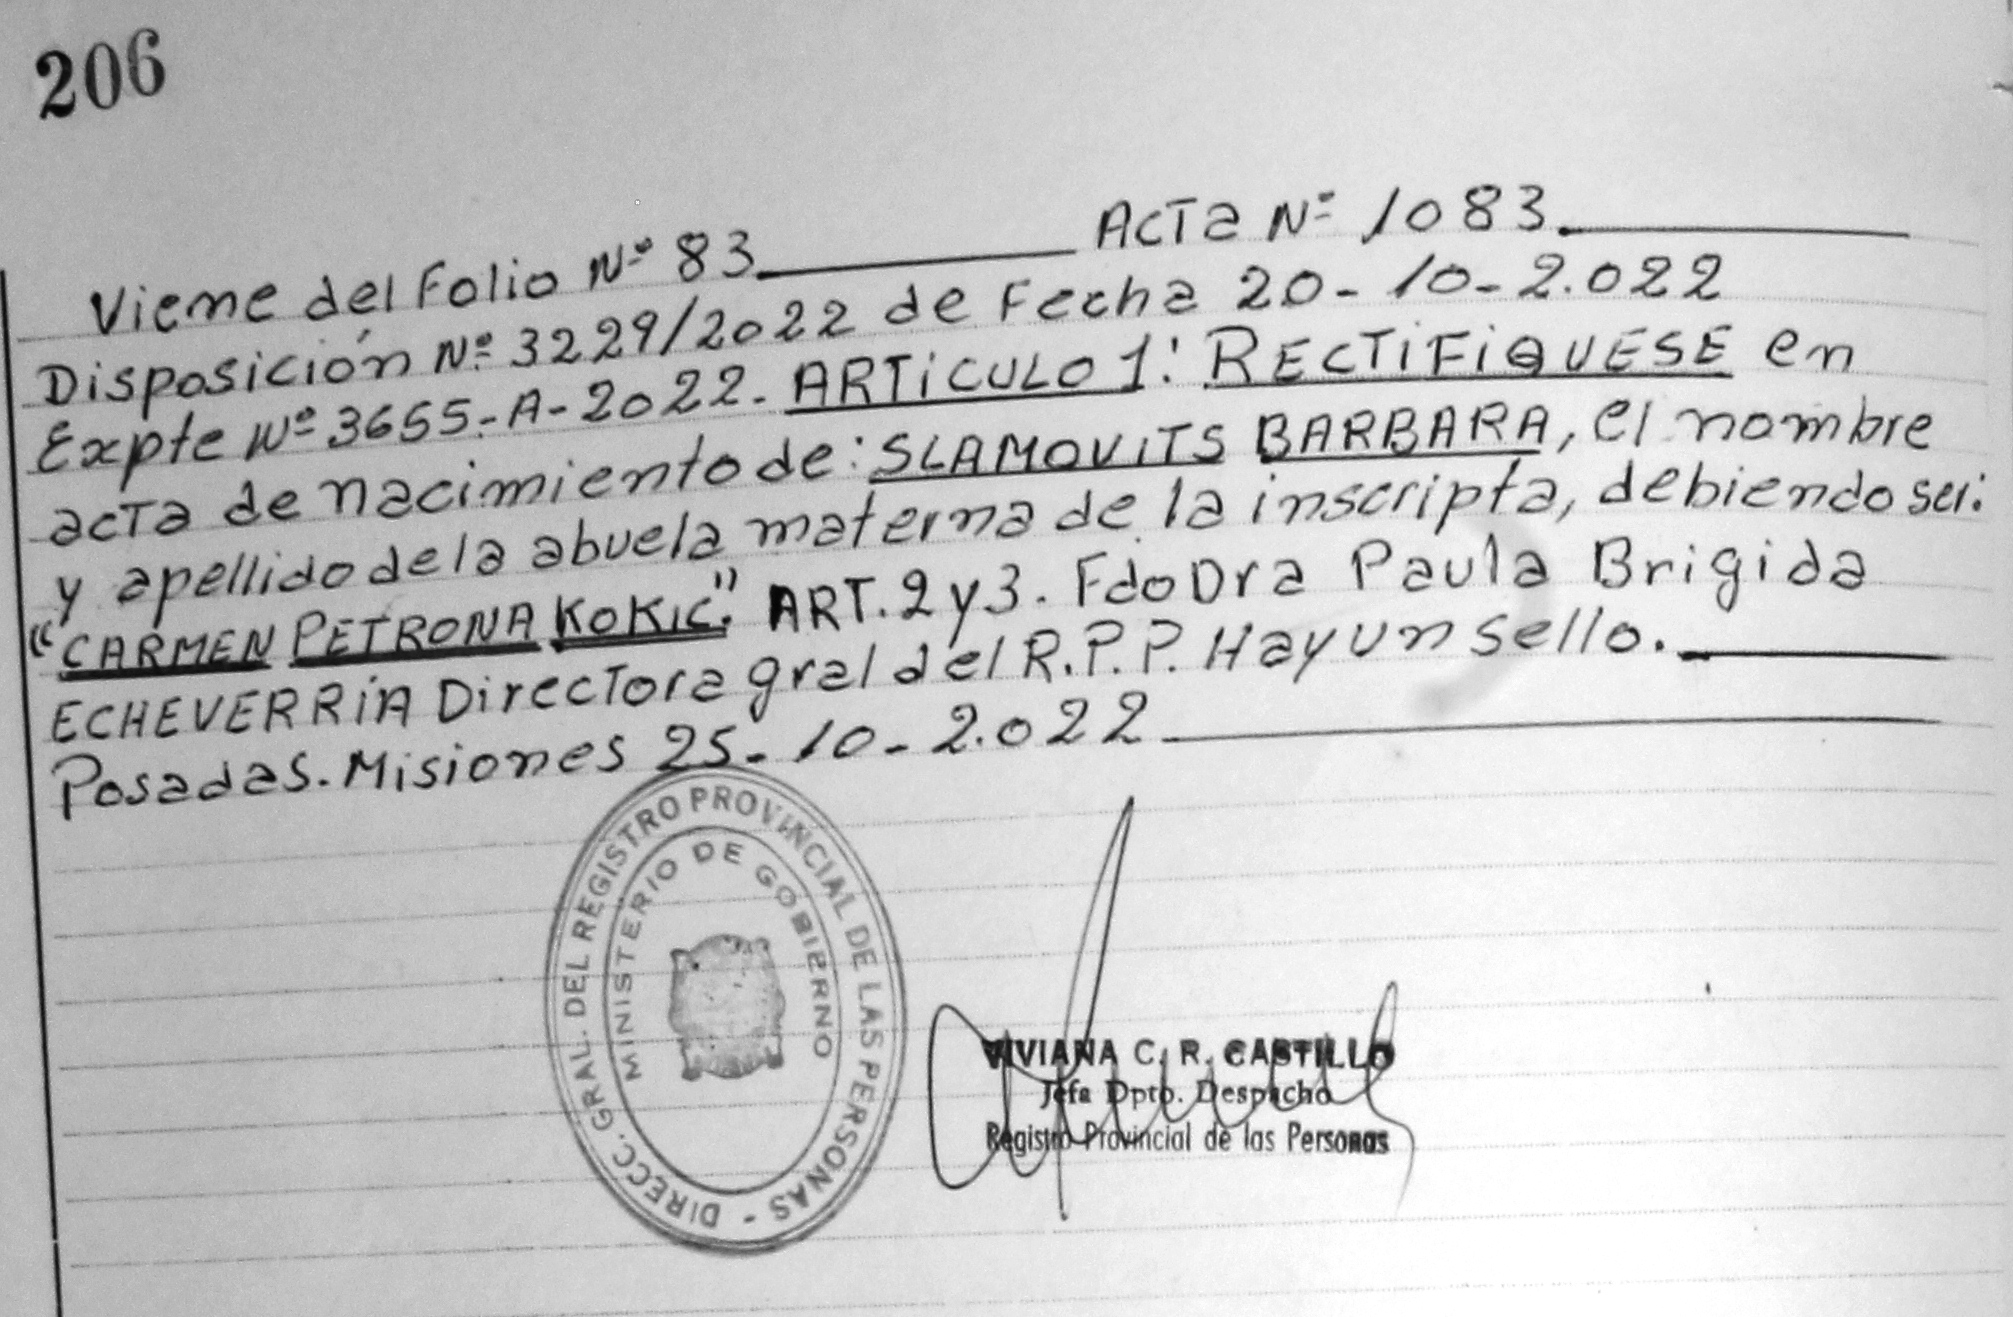 206
Viene del Folio Nº 83 ACTA Nº 1083.
Disposición Nº 3229/2022 de Fecha 20-10-2.022
Expte Nº 3655-A-2022. ARTICULO 1: RECTIFIQUESE en
acta de nacimiento de: SLAMOVITS BARBARA, el nombre
y apellido de la abuela materna de la inscripta, debiendo ser:
"CARMEN PETRONA KOKIC". ART. 2 y 3. Fdo Dra Paula Brigida
ECHEVERRÍA Directora gral del R.P.P. Hay un sello.
Posadas. Misiones 25-10-2.022
DIRECC. GRAL. DEL REGISTRO PROVINCIAL DE LAS PERSONAS -
MINISTERIO DE GOBIERNO
VIVIANA C. R. CASTILLO
Jefa Dpto. Despacho
Registro Provincial de las Personas